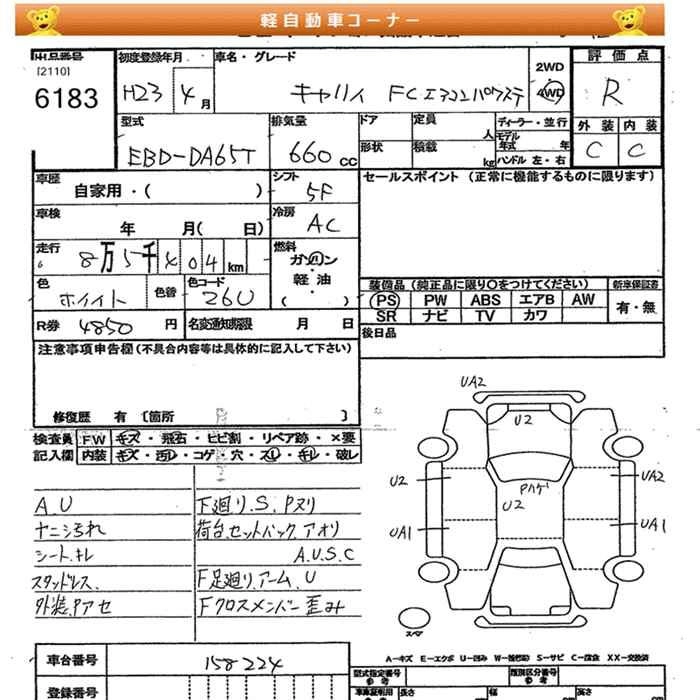 軽自動車コーナー
出品番号
[2110]
6183
初度登録年月
H23 4 月
車名・グレード
キャリイ FCエアコンパワステ
2WD
4WD
評価点
R
外装 内装
C C
型式
EBD-DA65T
排気量
660 cc
ドア 定員 人
形状 積載 kg
ディーラー・並行
モデル年式 年
ハンドル 左・右
車歴
自家用・( )
シフト
5F
車検
年 月( 日)
冷房
AC
走行
8万5千404 km
燃料
ガソリン
・
軽油
( )
色
ホワイト
色替
色コード
26U
R券 4850 円
名変通知期限 月 日
セールスポイント (正常に機能するものに限ります)
装備品 (純正品に限り○をつけてください)
PS PW ABS エアB AW
SR ナビ TV カワ
新車保証書
有・無
後日品
注意事項申告欄(不具合内容等は具体的に記入して下さい)
修復歴 有〔箇所 〕
検査員記入欄
FW キズ・飛石・ヒビ割・リペア跡・×要
内装 キズ・汚レ・コゲ・穴・スレ・キレ・破レ
A.U
ヤニシ汚れ
シート.キレ
スタッドレス.
外装.Pアセ
下廻り.S.Pヌリ
荷台.セットバック.アオリ
A.U.S.C
F足廻り.アーム.U
Fクロスメンバー歪み
UA2
U2
U2
UA1
Pハゲ
U2
UA2
UA1
スペア
A-キズ E-エクボ U-凹み S-サビ C-腐食 XX-交換済
車台番号
158224
登録番号
型式指定番号
参考
類別区分番号
参考
長さ
幅
高さ